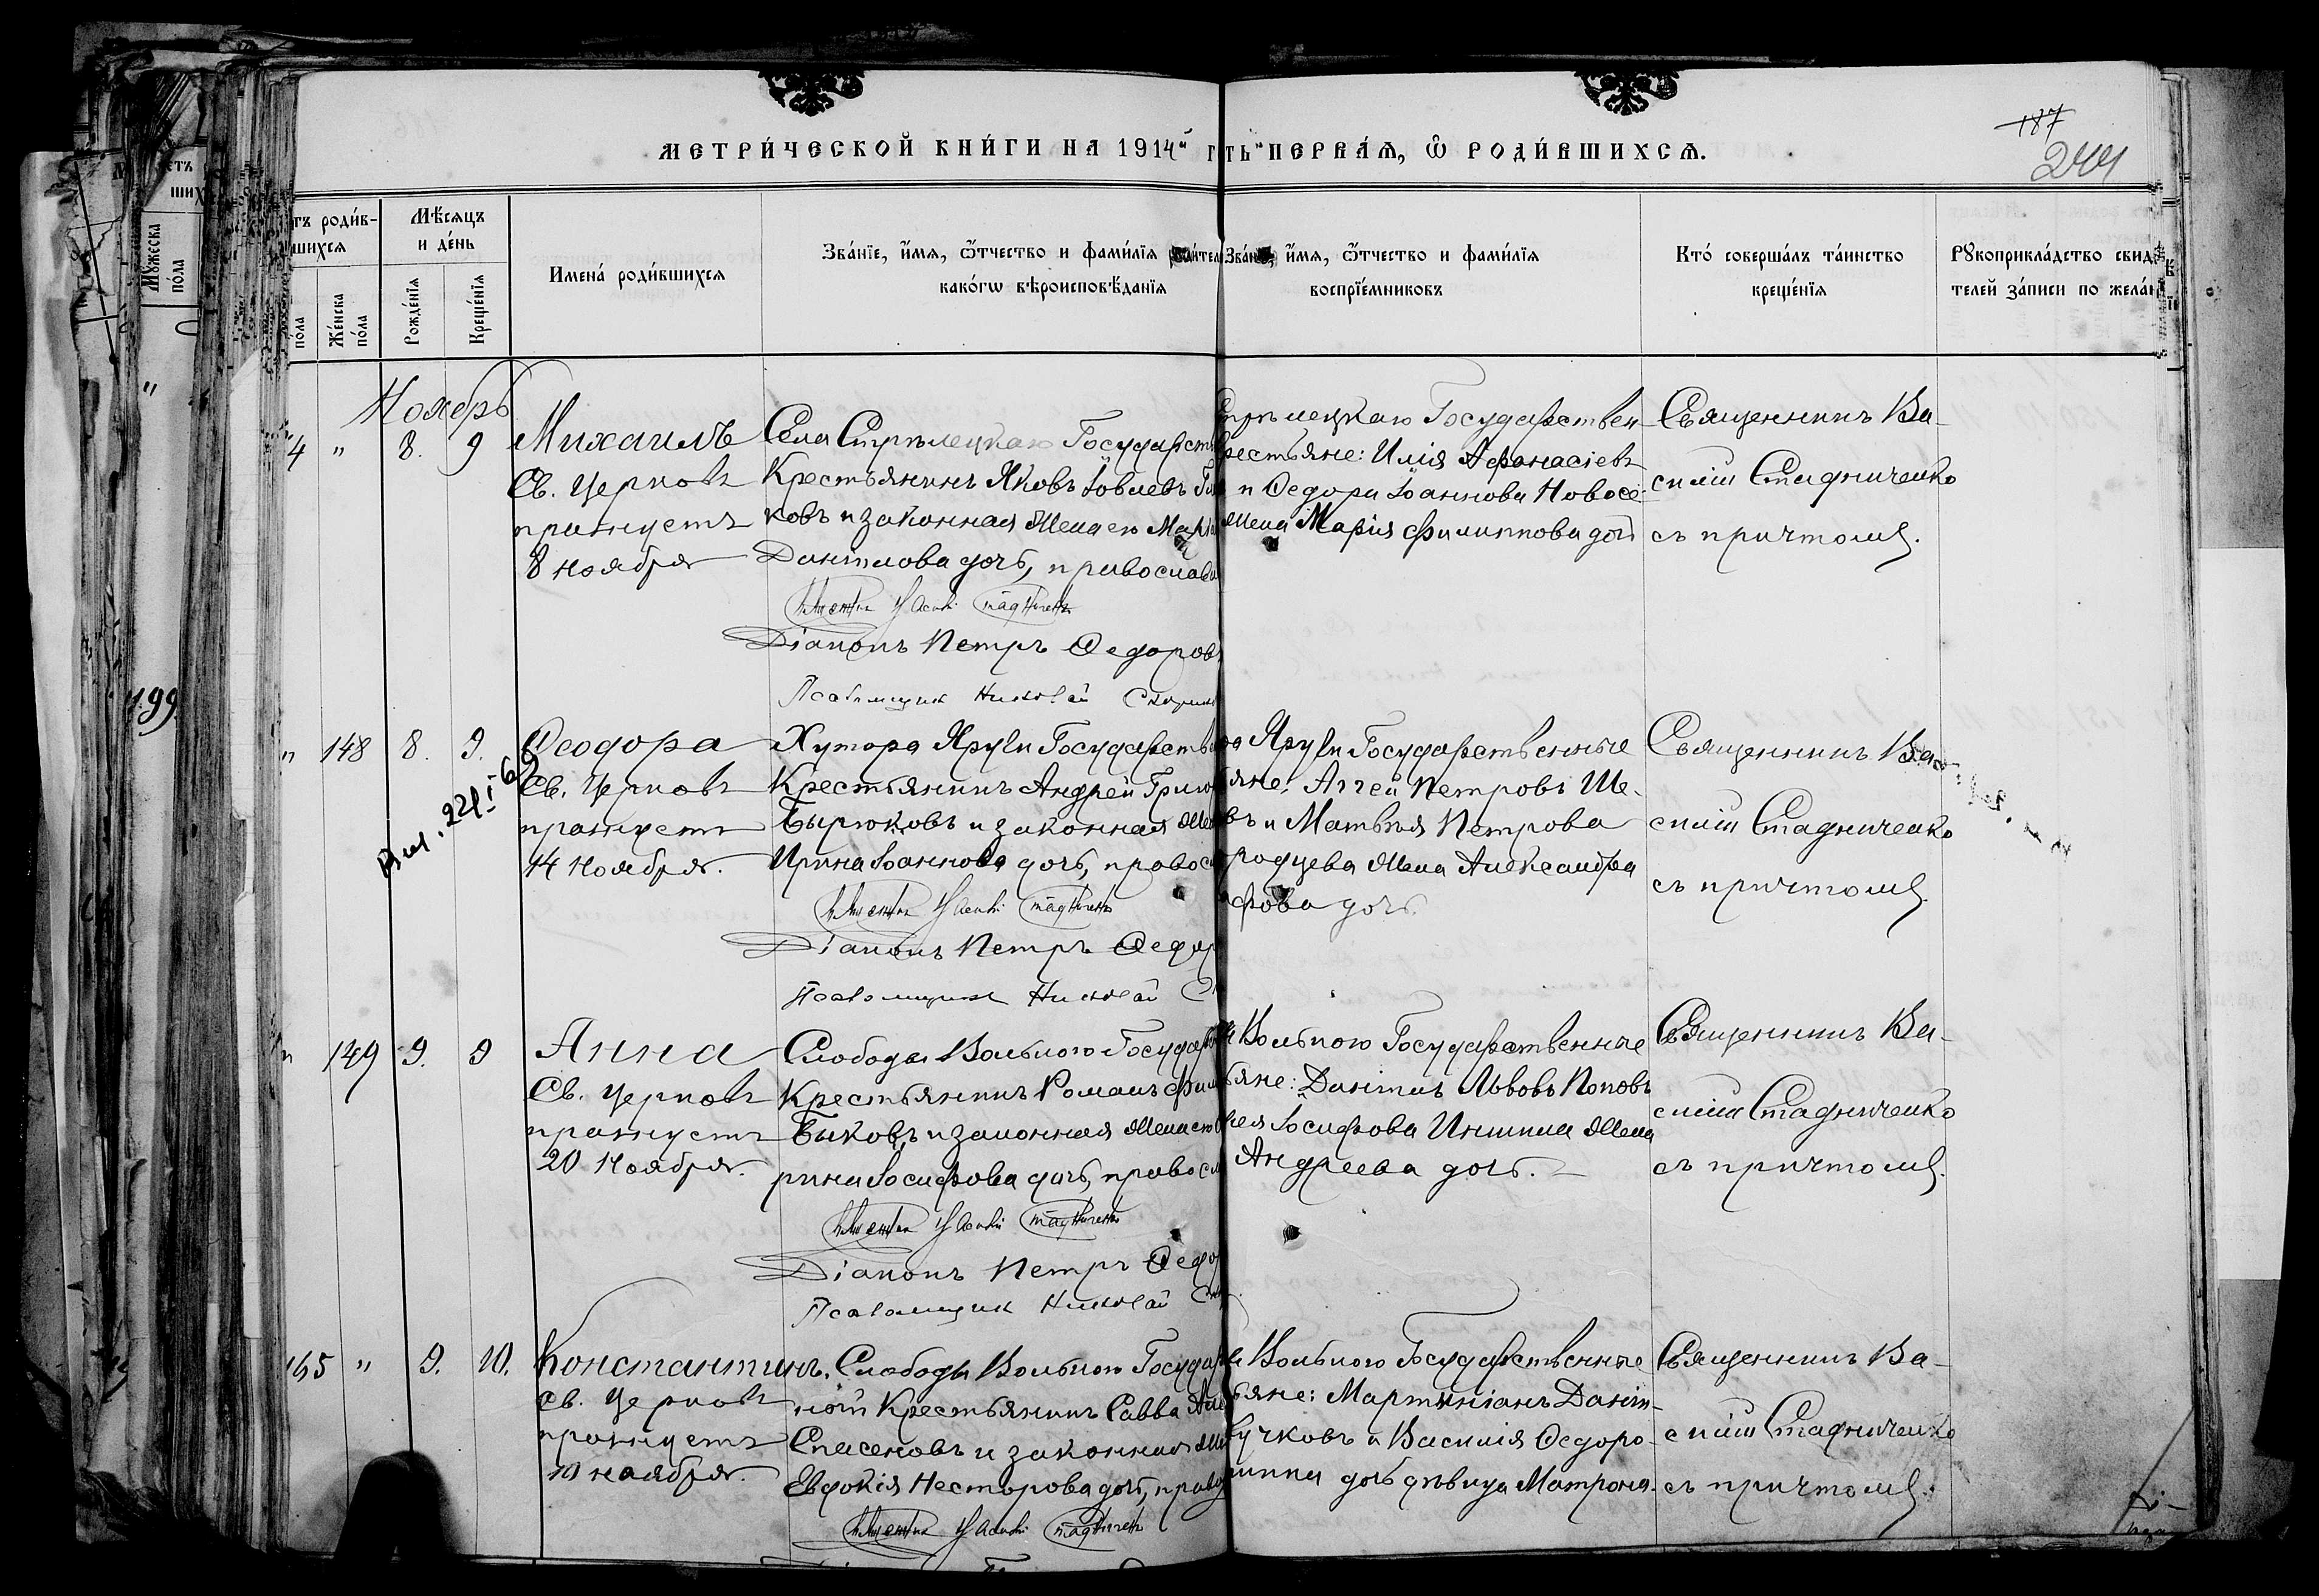 МЕТРИ́ЧЕСКОЙ КНИ́ГИ НА 1914й
ПЕРВАѦ, Ѡ РОДИ́ВШИХСѦ.
187
244
роди́в-
шихсѧ
Мѣ́сѧцъ
и де́нь
по́ла
Же́нска
по́ла
Рожде́нїѧ
Креще́нїѧ
Имена̀ роди́вшихсѧ
Зва́нїе, и́мѧ, ѻ҆́тчество и фами́лїѧ
како́гѡ вѣроисповѣ́данїѧ
и́мѧ, ѻ҆́тчество и фами́лїѧ
воспрїе́мниковъ
Кто̀ соверша́лъ та́инство
креще́нїѧ
Рꙋкоприкла́дство свидѣ
телей за́писи по жела́н
Мꙋ́жеска
по́ла
199
Ноябрь
4 " 8. 9
Михаилъ
Св. Церковь
празнуетъ
8 ноября
Села Стрѣлецкаго Государств
Крестьянинъ Яковъ Іовлевъ
ковъ и законная жена его
Даніилова дочь, православн
Священникъ Василій Стадниченко
Діаконъ Петръ Ѳедоров
Псаломщик Николай
Стрѣлецкаго Государствен
крестьяне: Илія Аѳанасіевъ
и Ѳедора Іоаннова Новосе
жена Марія Филиппова дочь
Священникъ Ва-
силій Стадниченко
съ причтомъ.
" 148 8. 9.
Ѳеодора
Св. Церковь
празнуетъ
14 Ноября.
Хутора Яруги Государств
Крестьянинъ Андрей Григо
Бирюковъ и законная жена
Ирина Іоаннова дочь, правос
Священникъ Василій Стадниченко
Діаконъ Петръ Ѳедор
Псаломщик Николай
Яруги Государственные
яне: Аггей Петровъ Ше-
въ и Матѳія Петрова
родцева жена Александра
дочь.
Священникъ Ва-
силій Стадниченко
съ причтомъ.
" 149 9. 9
Анна
Св. Церковь
празнуетъ
20 Ноября.
Слободы Вольного Государ
Крестьянинъ Романъ Фил
Быковъ и законная жена его
рина Іосифова дочь, правосл
Священникъ Василій Стадниченко
Діаконъ Петръ Ѳедо
Псаломщик Николай
Вольного Государственные
яне: Даніилъ Львовъ Поповъ
Іосифова Иншина жена
Андреева дочь.
Священникъ Ва-
силій Стадниченко
съ причтомъ.
165 " 9. 10.
Константинъ.
Св. Церковь
празнуетъ
10 ноября.
Слободы Вольного Государ
ной Крестьянинъ Савва
Спасеновъ и законная жена
Евдокія Несторова дочь, право
Священникъ Василій Стадниченко
Вольного Государственные
яне: Мартиніанъ Даніи-
учковъ и Василія Ѳедоро-
дочь дѣвица Матрона.
Священникъ Ва-
силій Стадниченко
съ причтомъ.